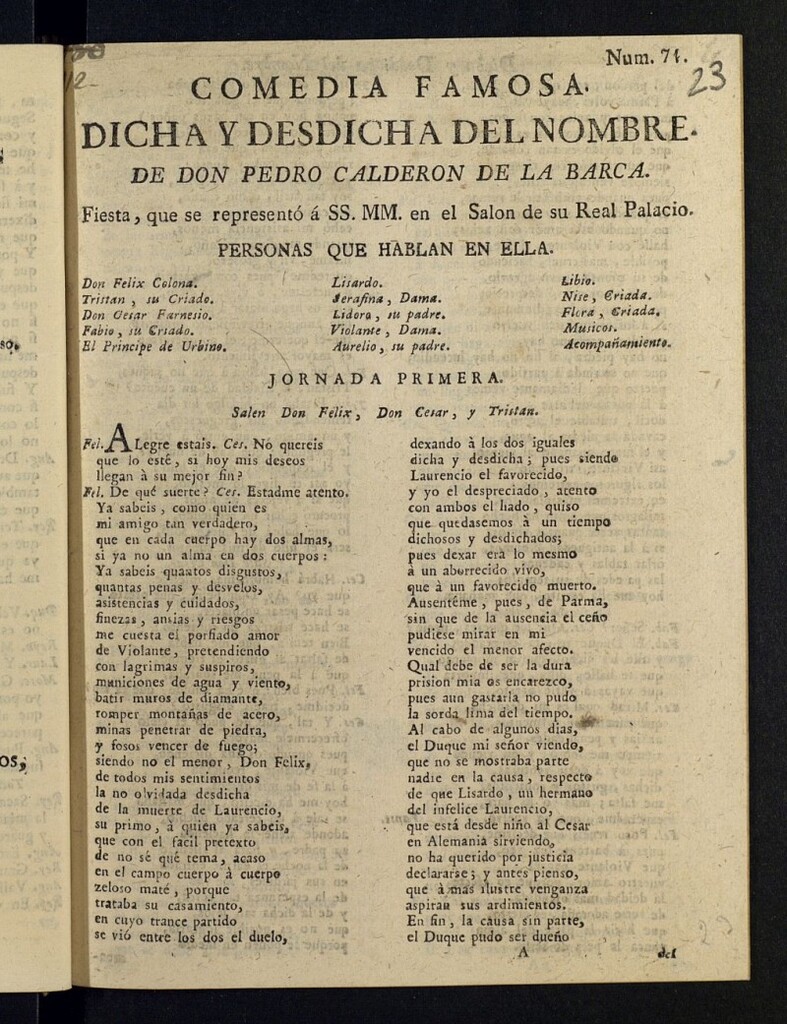 Num. 71.
23
COMEDIA FAMOSA.
DICHA Y DESDICHA DEL NOMBRE.
DE DON PEDRO CALDERON DE LA BARCA.
Fiesta, que se representó á SS. MM. en el Salon de su Real Palacio.
PERSONAS QUE HABLAN EN ELLA.
Don Felix Colona.
Tristan, su Criado.
Don Cesar Farnesio.
Fabio, su Criado.
El Principe de Urbino.
Lisardo.
Serafina, Dama.
Lidoro, su padre.
Violante, Dama.
Aurelio, su padre.
Libio.
Nise, Criada.
Flora, Criada.
Musicos.
Acompañamiento.
JORNADA PRIMERA.
Salen Don Felix, Don Cesar, y Tristan.
Fel. ALegre estais. Ces. No quereis
que lo esté, si hoy mis deseos
llegan à su mejor fin?
Fel. De qué suerte? Ces. Estadme atento.
Ya sabeis, como quien es
mi amigo tan verdadero,
que en cada cuerpo hay dos almas,
si ya no un alma en dos cuerpos:
Ya sabeis quantos disgustos,
quantas penas y desvelos,
asistencias y cuidados,
finezas, ansias y riesgos
me cuesta el porfiado amor
de Violante, pretendiendo
con lagrimas y suspiros,
municiones de agua y viento,
batir muros de diamante,
romper montañas de acero,
minas penetrar de piedra,
y fosos vencer de fuego;
siendo no el menor, Don Felix,
de todos mis sentimientos
la no olvidada desdicha
de la muerte de Laurencio,
su primo, à quien ya sabeis,
que con el facil pretexto
de no sé qué tema, acaso
en el campo cuerpo à cuerpo
zeloso maté, porque
trataba su casamiento,
en cuyo trance partido
se vió entre los dos el duelo,
dexando à los dos iguales
dicha y desdicha; pues siendo
Laurencio el favorecido,
y yo el despreciado, atento
con ambos el hado, quiso
que quedasemos à un tiempo
dichosos y desdichados;
pues dexar era lo mesmo
à un aborrecido vivo,
que à un favorecido muerto.
Ausentéme, pues, de Parma,
sin que de la ausencia el ceño
pudiese mirar en mi
vencido el menor afecto.
Qual debe de ser la dura
prision mia os encarezco,
pues aun gastarla no pudo
la sorda lima del tiempo.
Al cabo de algunos dias,
el Duque mi señor viendo,
que no se mostraba parte
nadie en la causa, respecto
de que Lisardo, un hermano
del infelice Laurencio,
que está desde niño al Cesar
en Alemania sirviendo,
no ha querido por justicia
declararse; y antes pienso,
que à mas ilustre venganza
aspiran sus ardimientos.
En fin, la causa sin parte,
el Duque pudo ser dueño
A
del